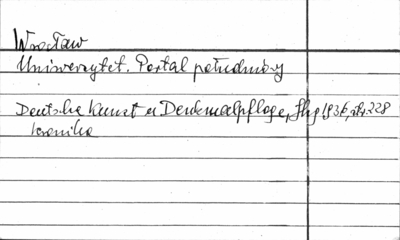 Wrocław
Uniwersytet. Portal południowy
Deutsche Kunst u Denkmalpflege, Jhg 1936, str. 228
kronika